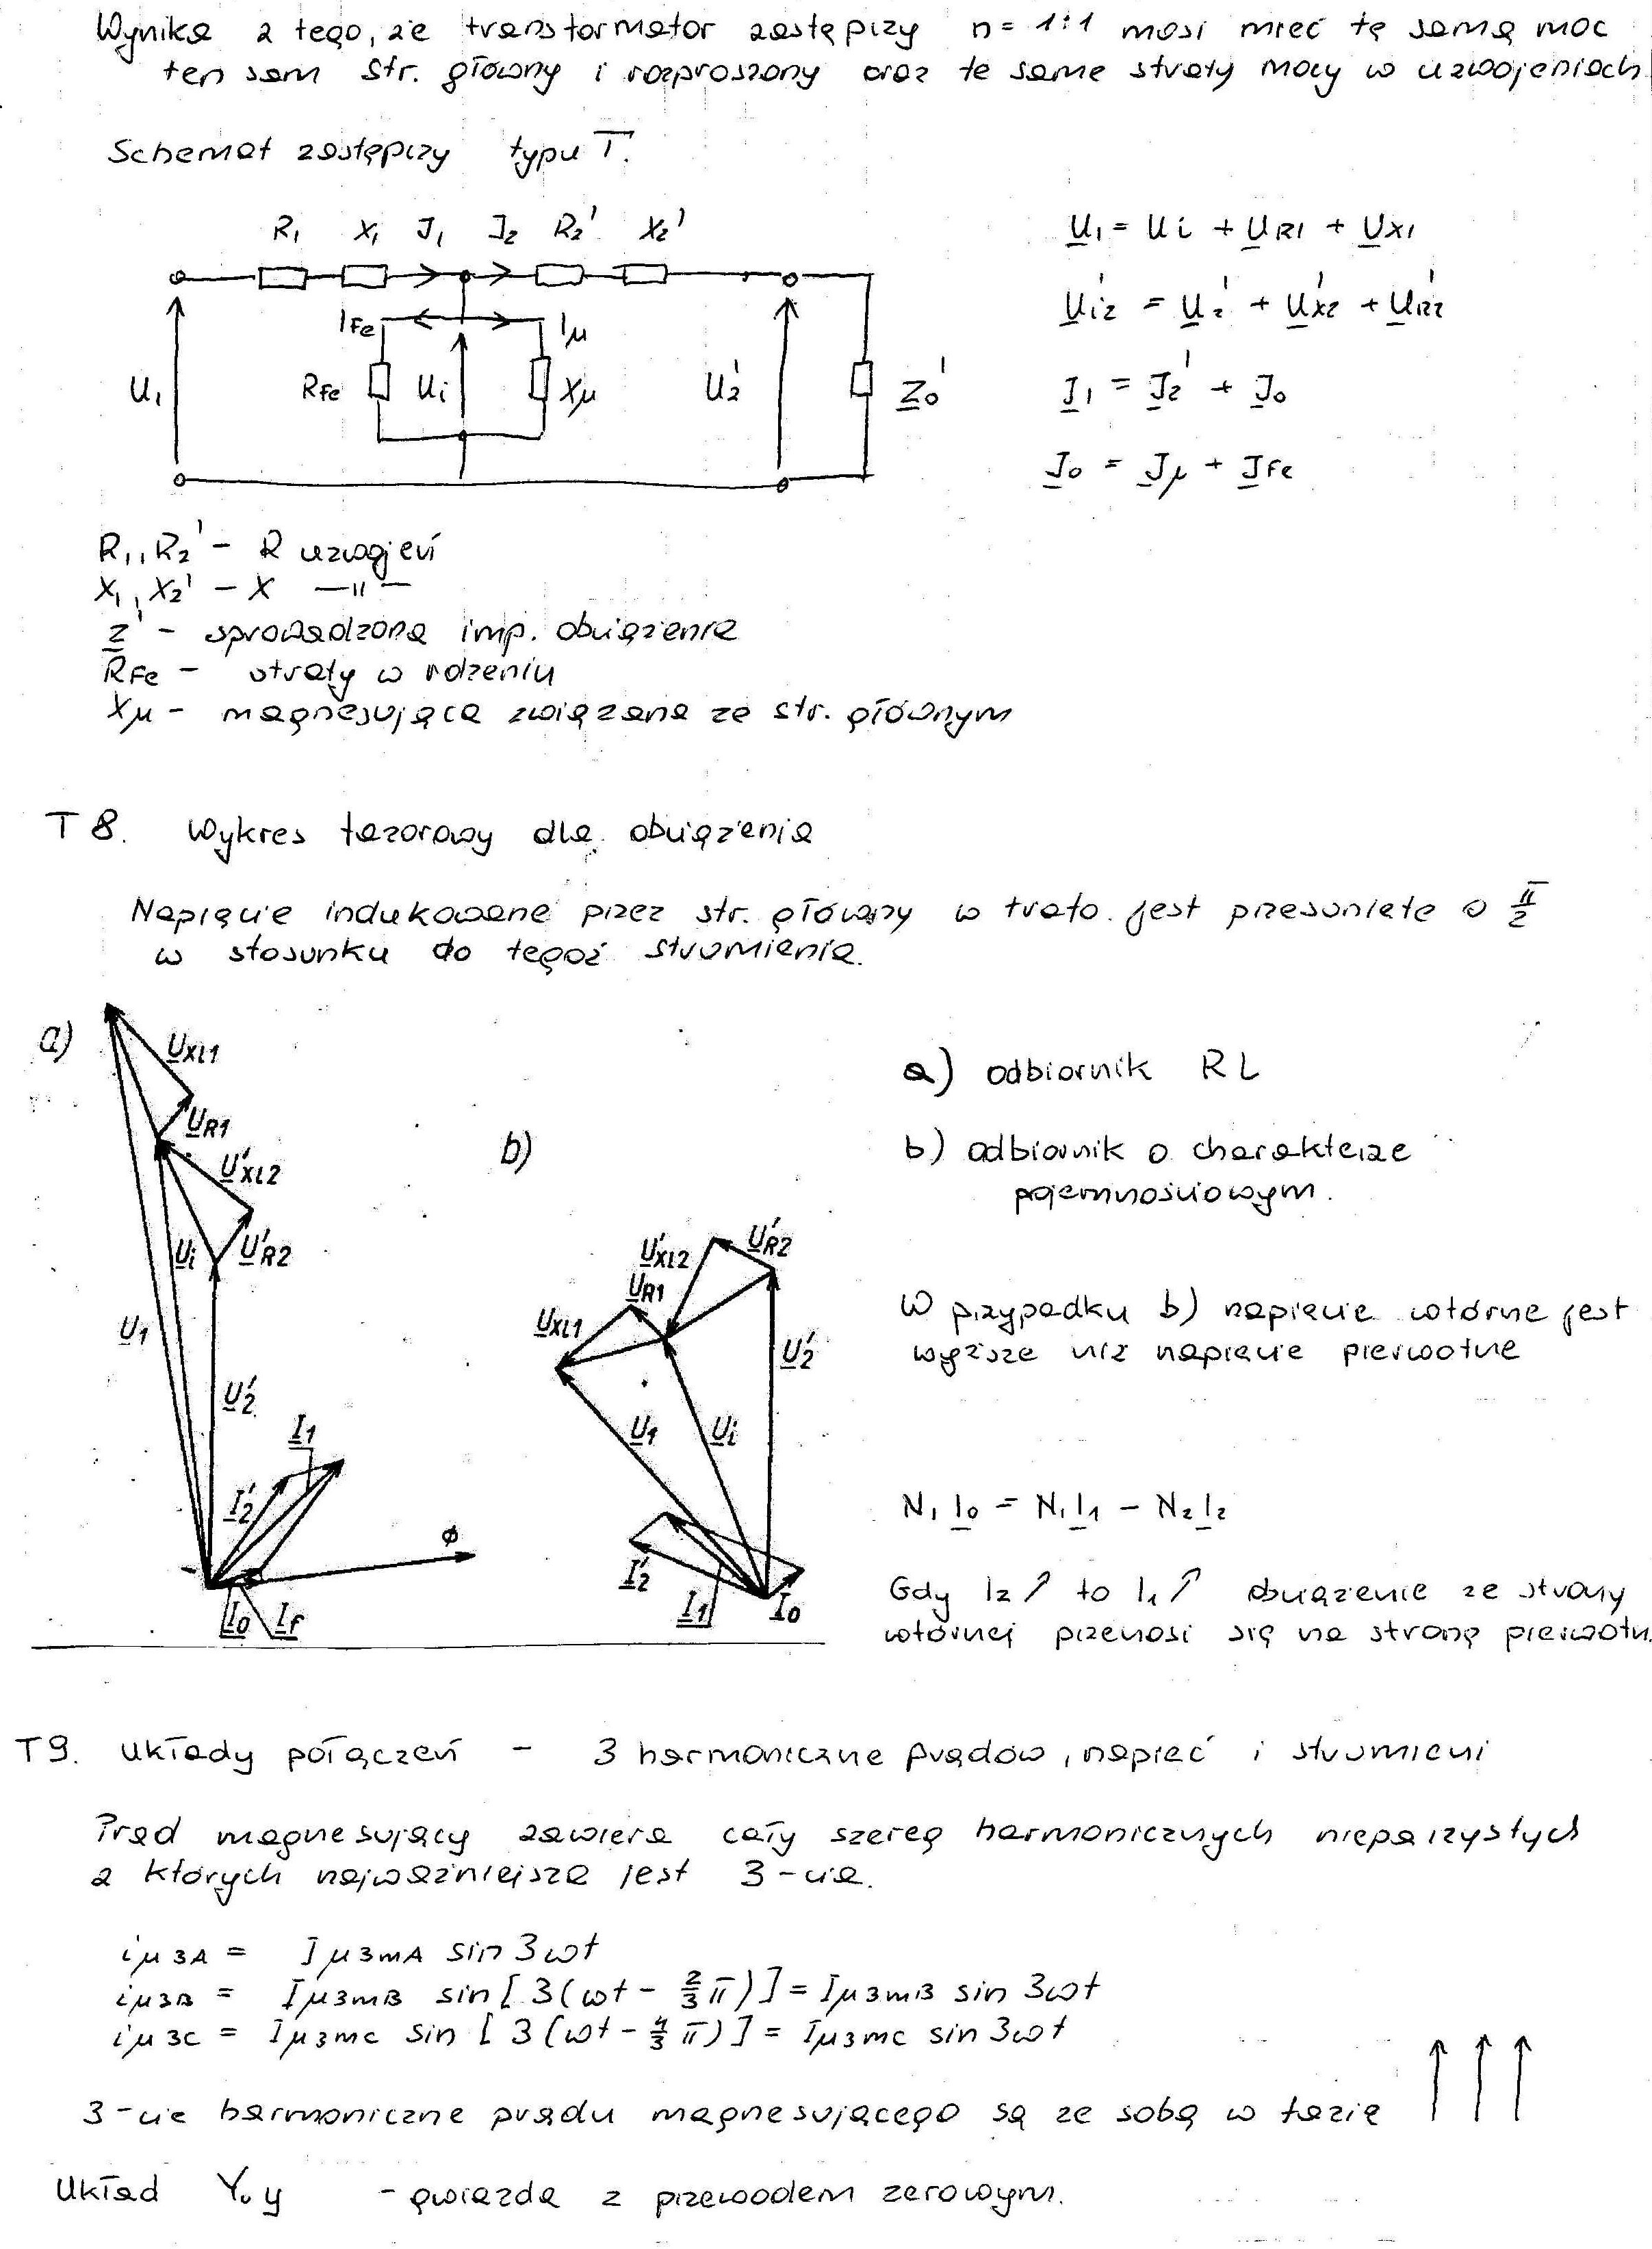 Wynika z tego, że transformator zastępczy n = 1:1 mosi mieć tę samą moc
ten sam str. główny i rozproszony oraz te same straty mocy w uzwojeniach
Schemat zastępczy typu T.
R1 X1 I1 I2 R2' X2'
U1 = Ui + UR1 + UX1
Ui2' = U2' + UX2' + UR2'
IFe Iμ
U1 RFe Ui Xμ U2' Z0'
I1 = I2' + I0
I0 = Iμ + IFe
R1, R2' - R uzwojeń
X1, X2' - X —〃—
Z' - sprowadzona imp. obciążenia
RFe - straty w rdzeniu
Xμ - magnesująca związana ze str. głównym
T 8. Wykres fazorowy dla obciążenia
Napięcie indukowane przez str. główny w trafo. jest przesunięte o π/2
w stosunku do tegoż strumienia.
a)
UXL1
UR1
U'XL2
Ui U'R2
U1
U'2
I1
I'2
Φ
I0 If
b)
U'XL2 U'R2
UR1
UXL1
U'2
U1 Ui
I'2 I1 I0
a) odbiornik RL
b) odbiornik o charakterze
pojemnościowym.
W przypadku b) napięcie wtórne jest
wyższe niż napięcie pierwotne
N1 I0 = N1 I1 - N2 I2
Gdy I2 ↗ to I1 ↗ obciążenie ze strony
wtórnej przenosi się na stronę pierwotn.
T9. Układy połączeń - 3 harmoniczne prądów, napięć i strumieni
Prąd magnesujący zawiera cały szereg harmonicznych nieparzystych
z których najważniejsza jest 3-cia.
iμ3A = Iμ3mA sin 3ωt
iμ3B = Iμ3mB sin [ 3(ωt - 2/3 π) ] = Iμ3mB sin 3ωt
iμ3C = Iμ3mC sin [ 3(ωt - 4/3 π) ] = Iμ3mC sin 3ωt
3-cie harmoniczne prądu magnesującego są ze sobą w fazie ↑ ↑ ↑
Układ Y0y - gwiazda z przewodem zerowym.